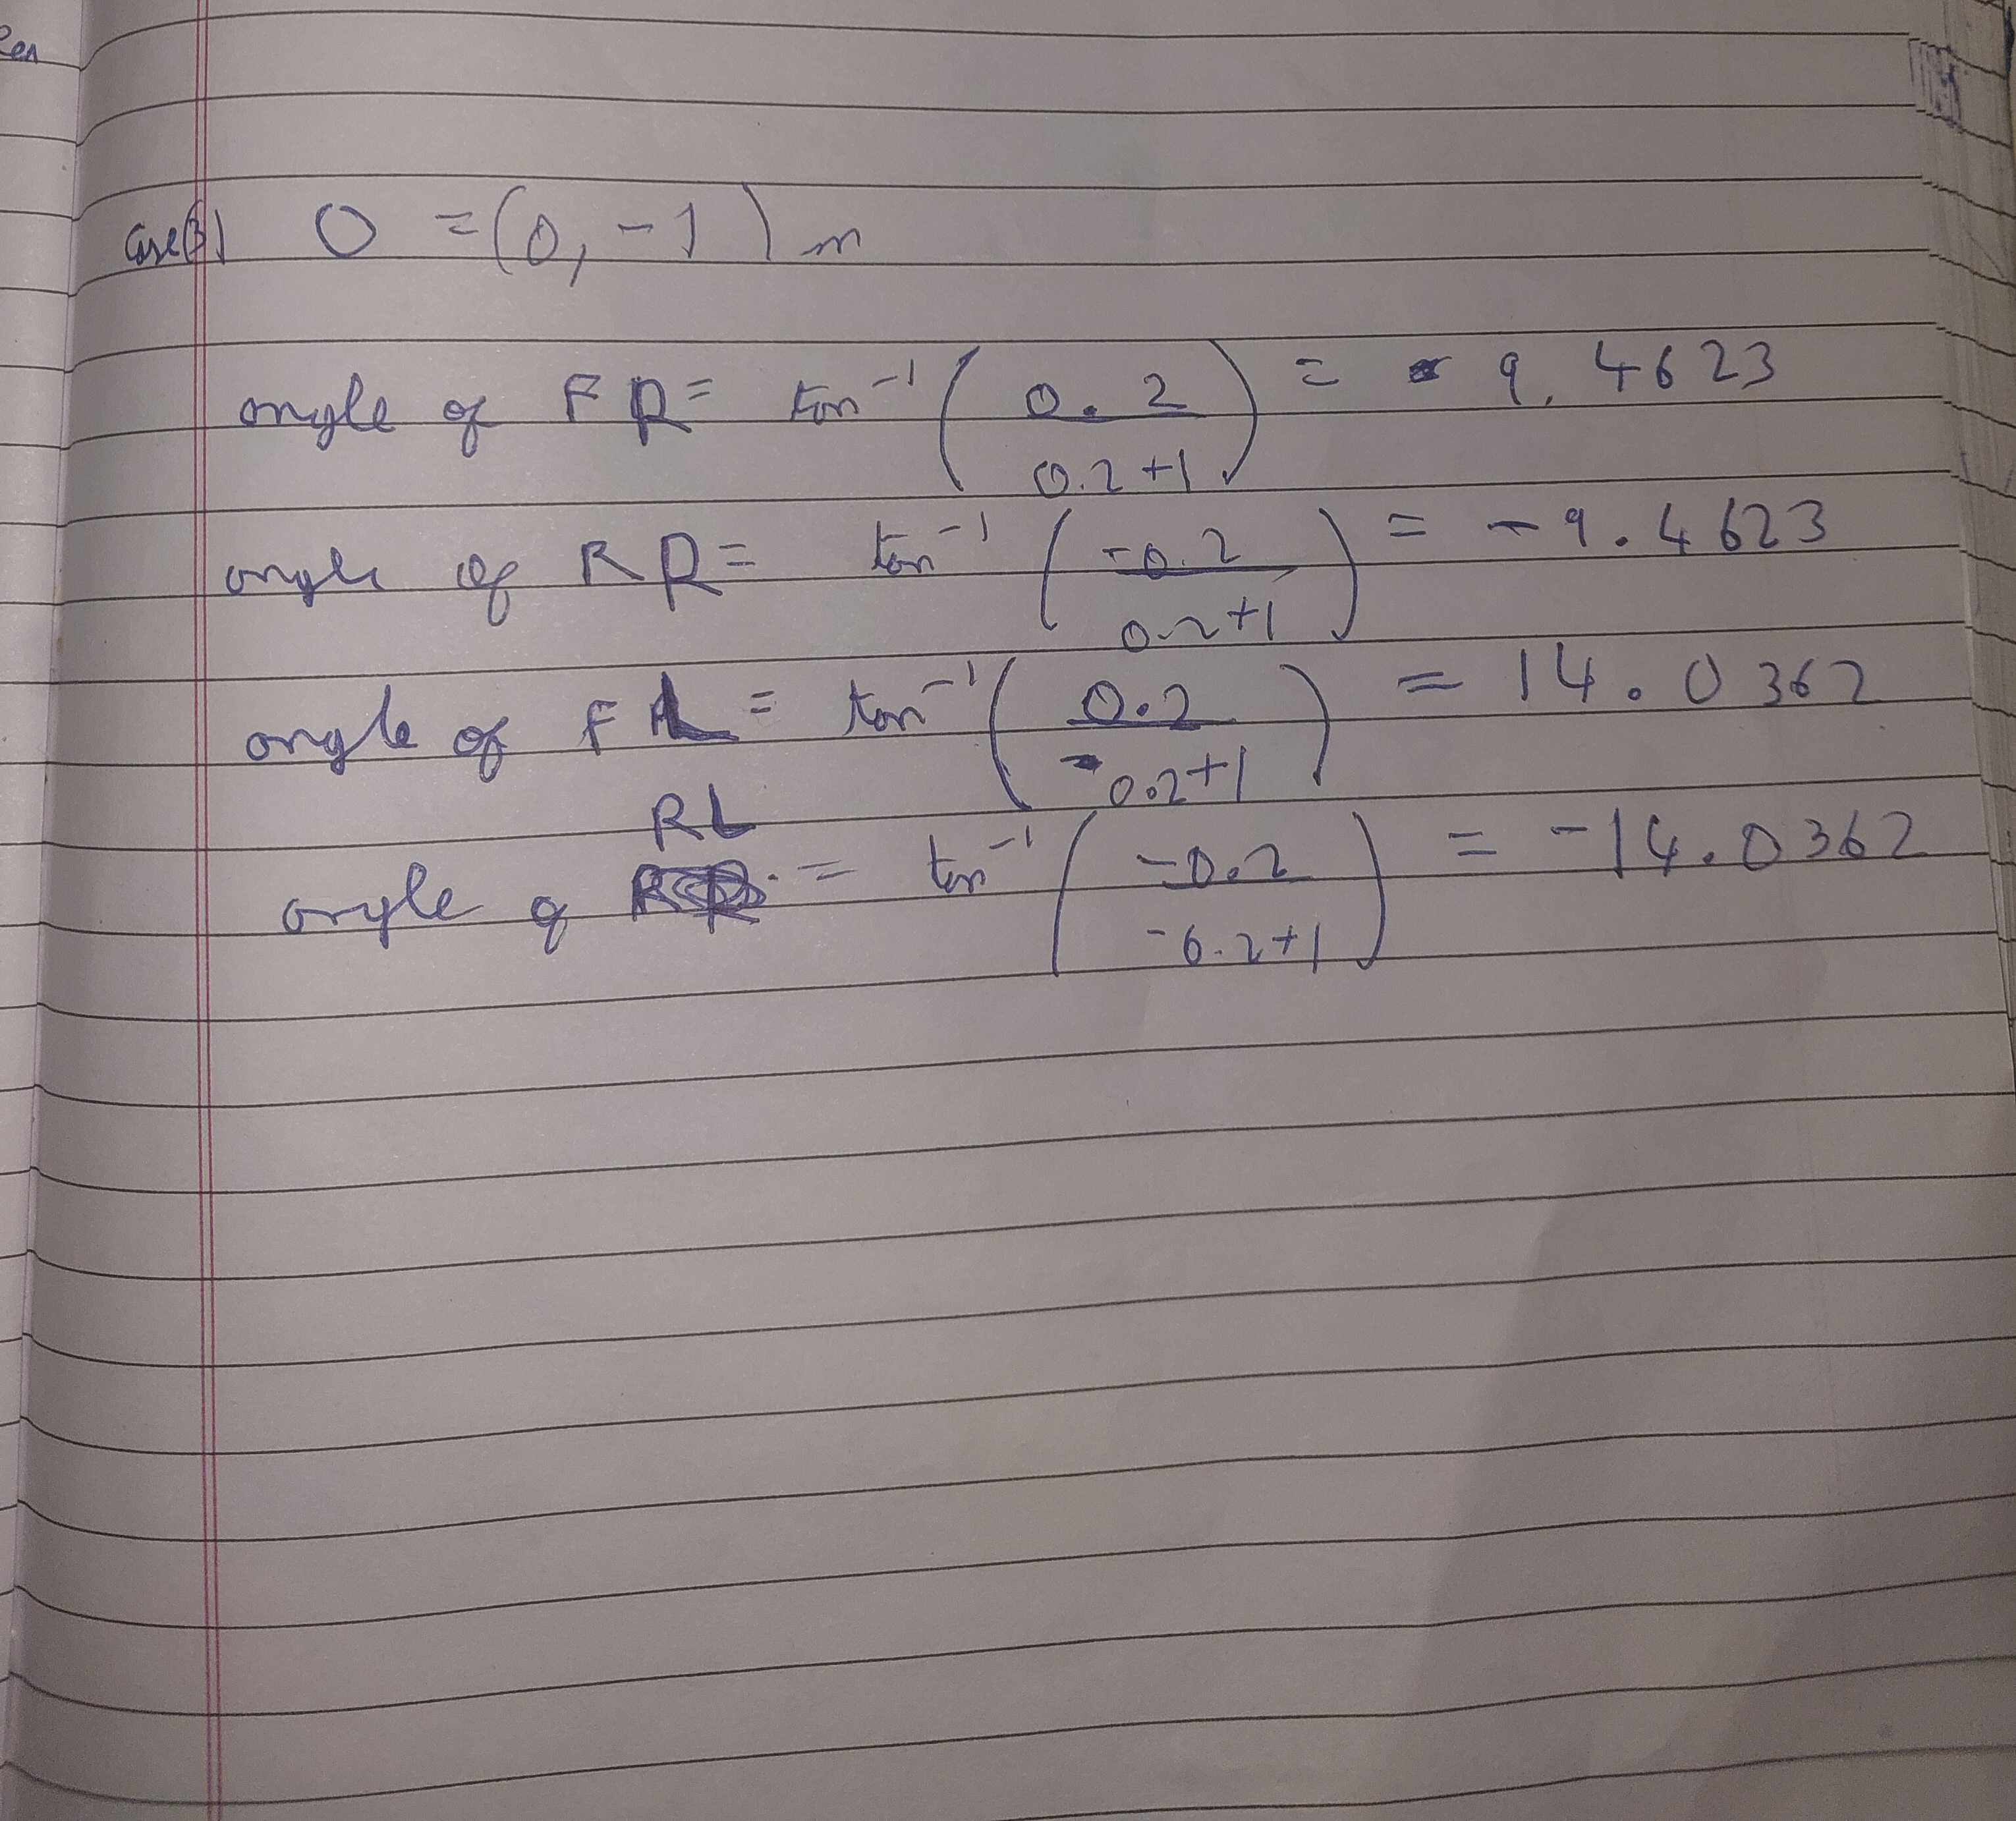 Case(3) O = (0, -1) m
angle of FR = tan⁻¹ (0.2 / 0.2+1) = 9.4623
angle of RR = tan⁻¹ (-0.2 / 0.2+1) = -9.4623
angle of FL = tan⁻¹ (0.2 / -0.2+1) = 14.0362
RL
angle of = tan⁻¹ (-0.2 / -0.2+1) = -14.0362